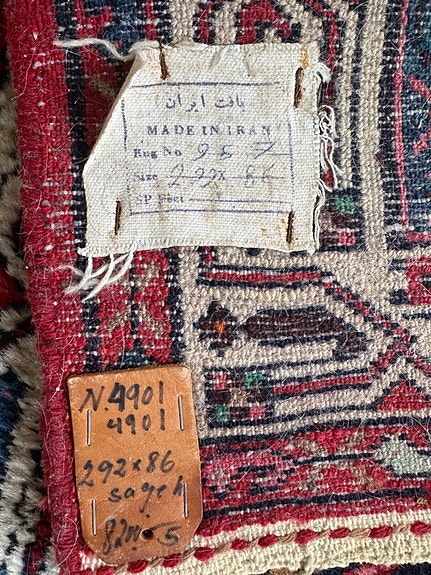 بافت ایران
MADE IN IRAN
Rug No 957
Size 292x86
SP Feet
N.4901
4901
292x86
sageh